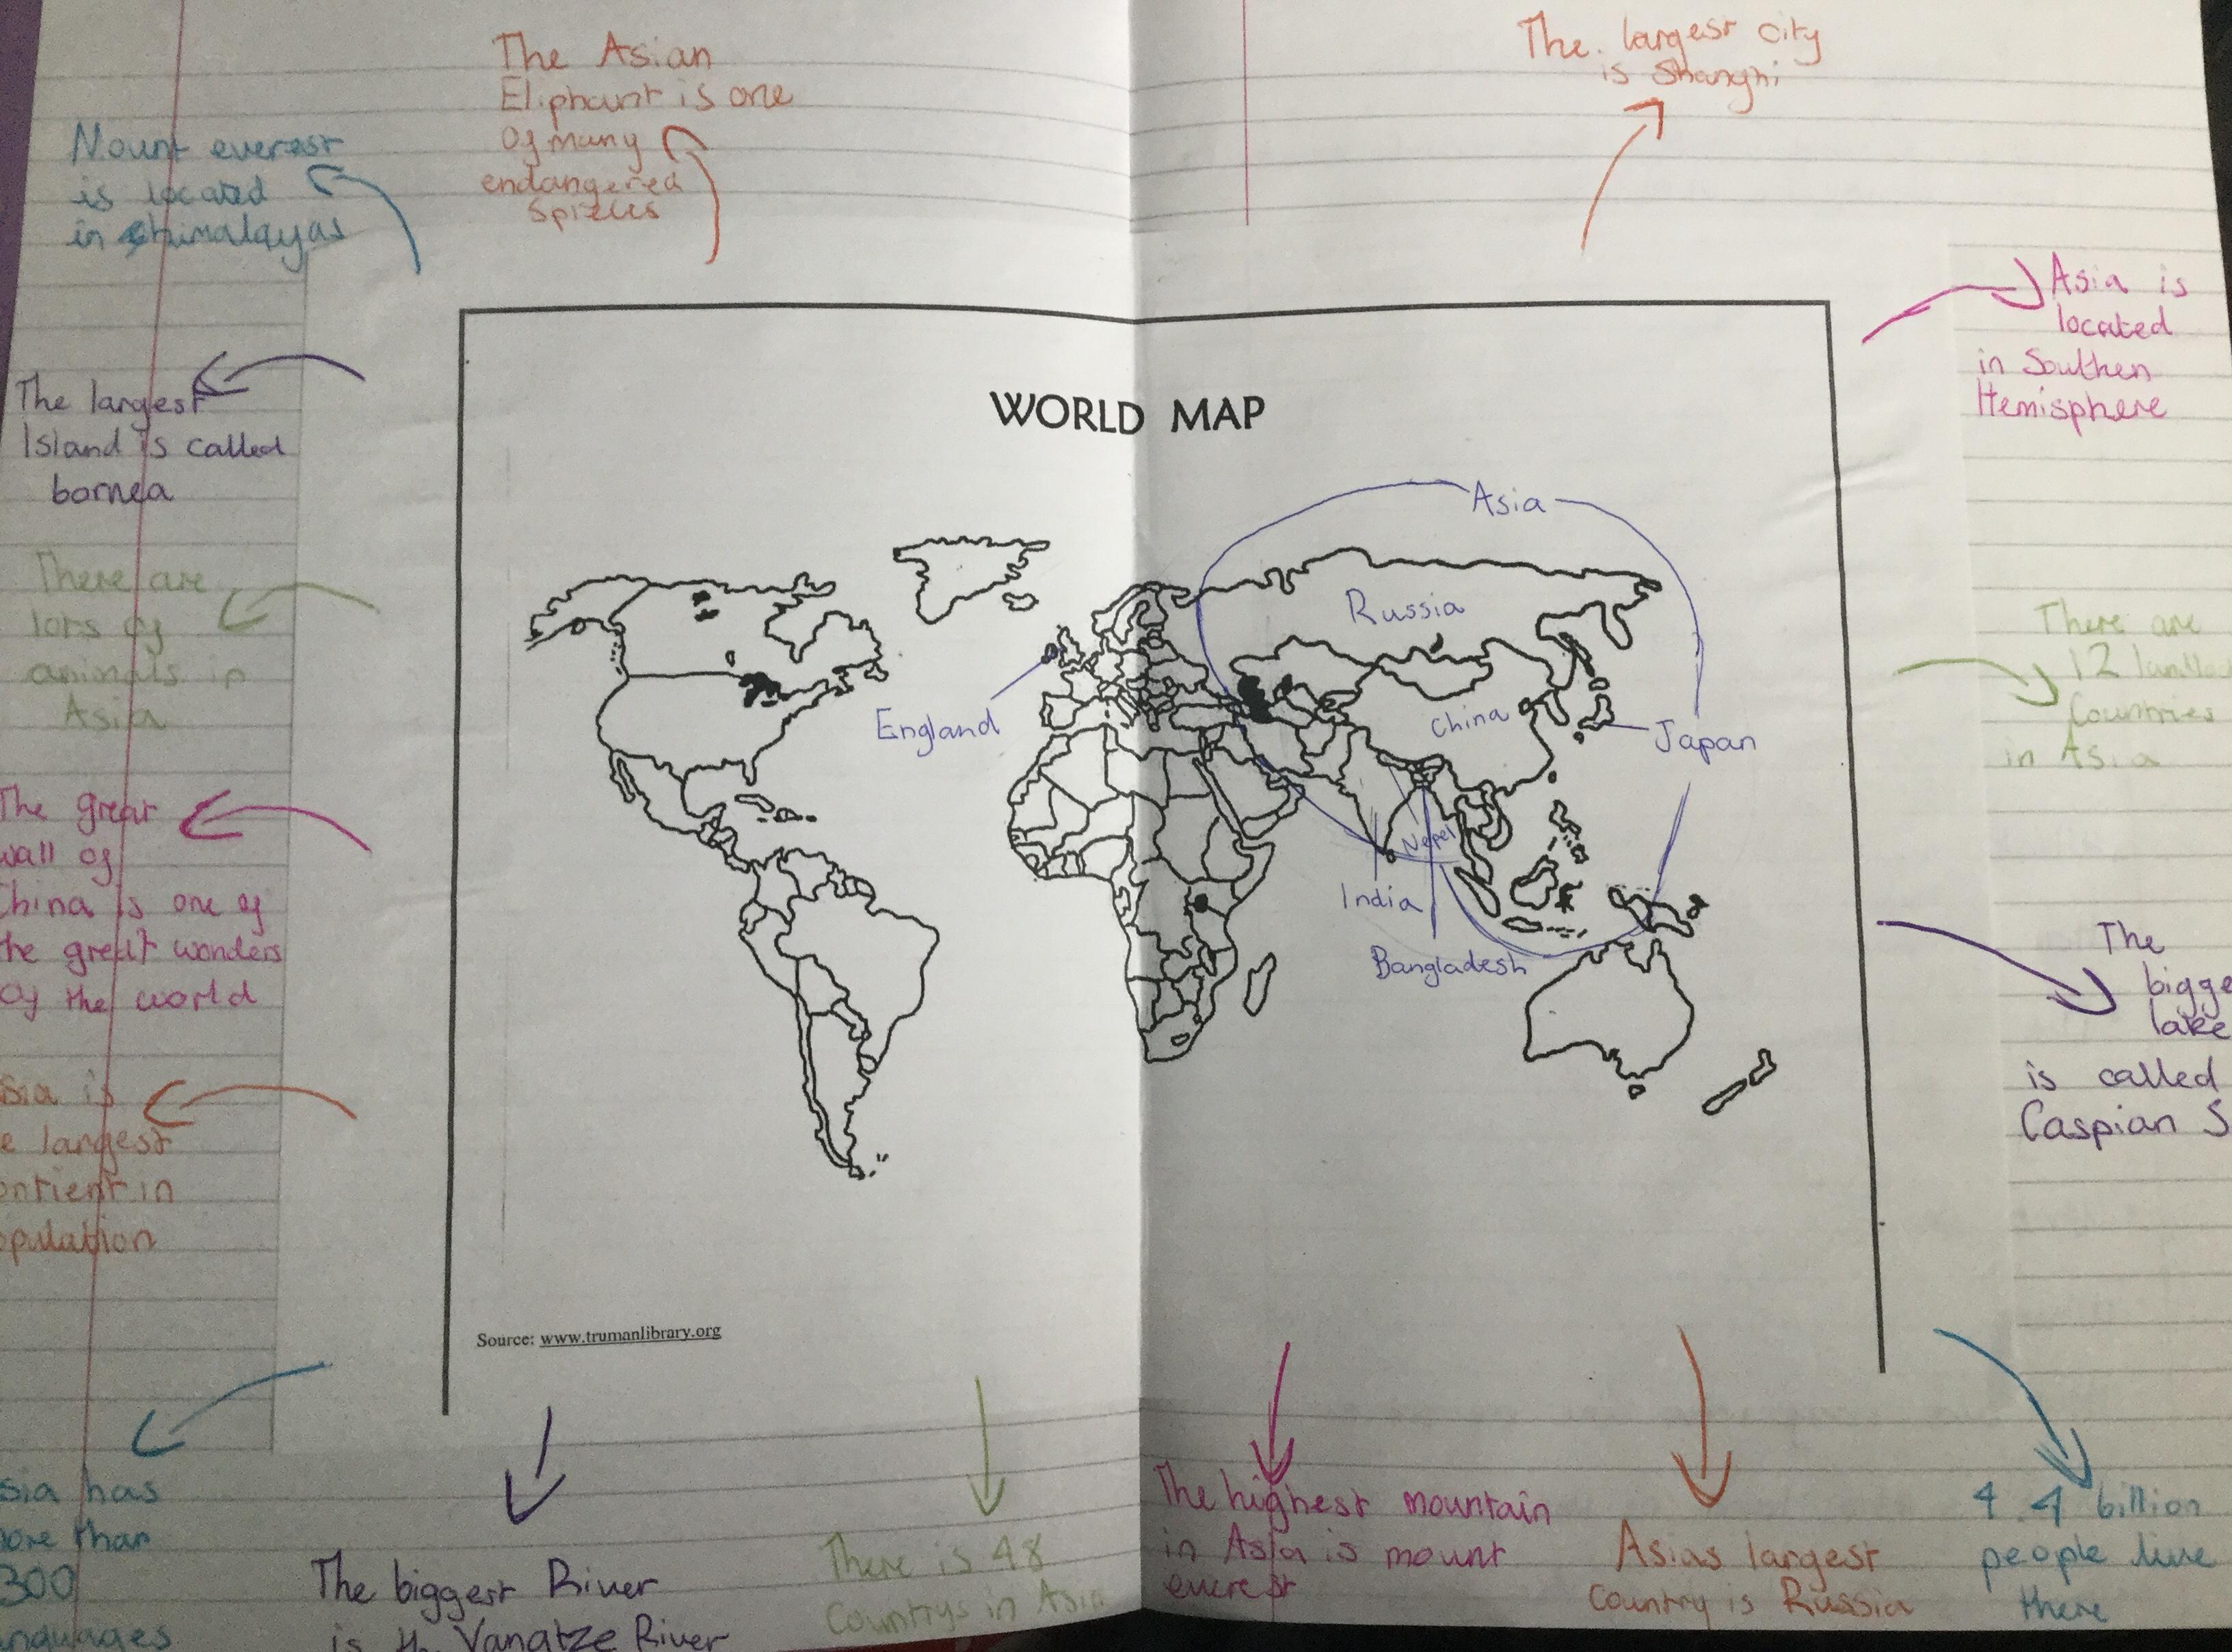 The Asian
Eliphant is one
Of many
endangered
Spizeus
The. largest city
is Shanghi
Mount everest
is located
in himalayas
Asia is
located
in Southen
Hemisphere
The largest
Island is called
bornea
WORLD MAP
Asia
Russia
England
China
Japan
Nepel
India
Bangladesh
There are
lots of
animals in
Asia
There are
12
Countries
in Asia
The great
wall of
China is one of
the great wonders
of the world
The
bigge
lake
is called
Caspian S
sia is
e largest
ontient in
opulation
Source: www.trumanlibrary.org
sia has
ore than
300
nguages
The biggest River
is th Yangtze River
There is 48
Countrys in Asia
The highest mountain
in Asia is mount
everest
Asias largest
Country is Russia
4.4 billion
people live
there